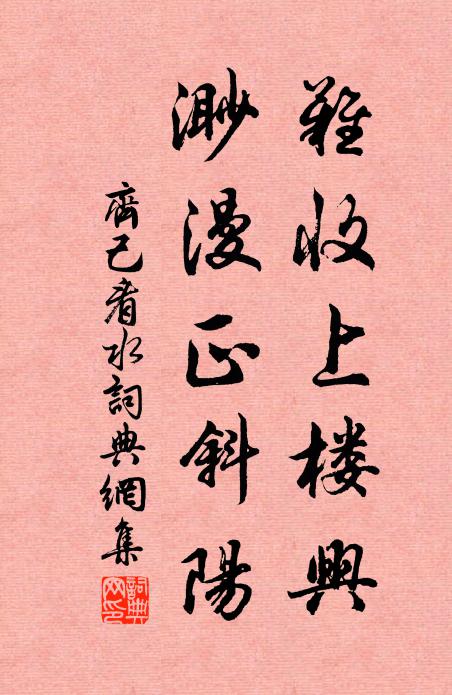 難收上楼興
渺漫正斜陽
齊己看水詞典網集
詞典
网印